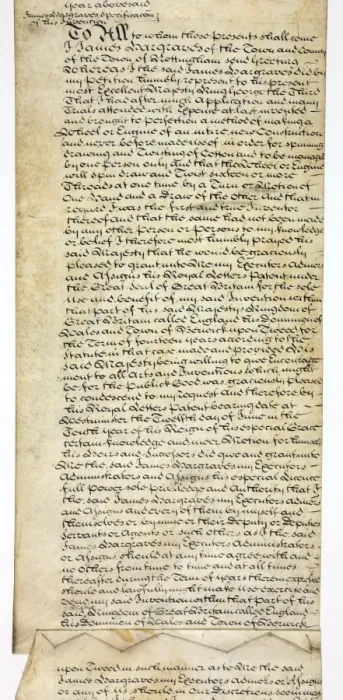 year above said
James Hargraves Specification
of his Invention
To All to whom these presents shall come
I James Hargraves of the Town and County
of the Town of Nottingham send Greeting
Whereas I the said James Hargraves did by
my Petition humbly represent to his present
most Excellent Majesty King George the Third
That I had after much Application and many
Trials attended with Expence at last invented
and brought to perfection a method of making a
Wheel or Engine of an intire new Construction
and never before made use of in order for spinning
drawing and twisting of Cotton and to be managed
by one Person only and that the Wheel or Engine
will spin draw and Twist sixteen or more
Threads at one time by a Turn or Motion of
One Hand and a draw of the other And that
I was the first and true Inventor
thereof and that the same had not been made
by any other Person or Persons to my knowledge
or belief I therefore most humbly prayed his
said Majesty that he would be graciously
pleased to grant unto Me my Executors Admors
and Assigns his Royal Letters Patent under
the Great Seal of Great Britain for the sole
Use and benefit of my said Invention within
that part of his said Majestys Kingdom of
Great Britain called England his Dominion of
Wales and Town of Berwick upon Tweed for
the Term of fourteen years according to the
Statute in that case made and provided His
said Majesty being willing to give Encourage
ment to all Arts and Inventions which might
be for the Publick Good was graciously pleased
to condescend to my request and therefore by
his Royal Letters Patent bearing date at
Westminster the Twelfth day of June in the
Tenth year of his Reign of his especial Grace
certain knowledge and meer Motion for himself
his Heirs and Successors did give and grant unto
Me the said James Hargraves my Executors
Administrators and Assigns his especial Licence
full power sole priviledge and Authority that I
the said James Hargraves my Executors Admors
and Assigns and every of them by myself and
themselves or by mine or their deputy or deputies
Servants or Agents or such others as I the said
James Hargraves my Executors Administrators
or Assigns should at any time agree with and
no Others from time to time and at all times
thereafter during the Term of years therein expressed
should and lawfully might make use exercise and
vend my said Invention within that part of his
said Kingdom of Great Britain called England
his Dominion of Wales and Town of Berwick
upon Tweed in such manner as to Me the said
James Hargraves my Executors Admors or Assigns
or any of us should in our Discretions seem meet